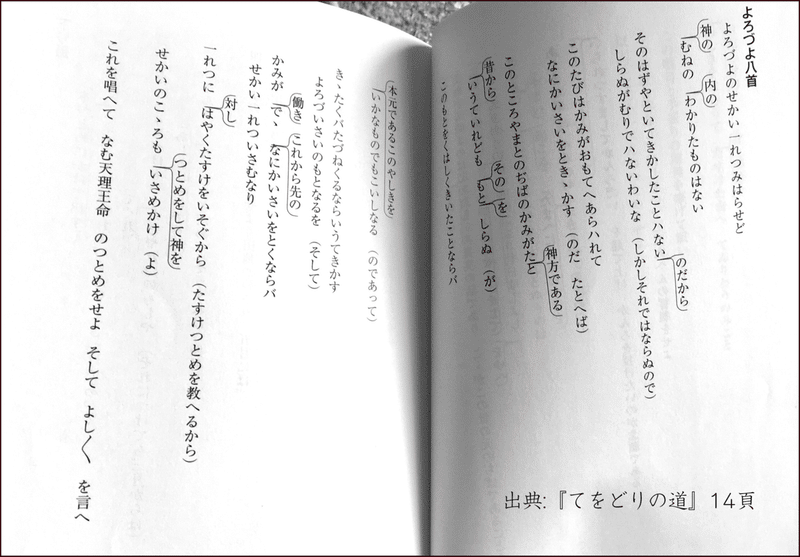 よろづよ八首
よろづよのせかい一れつみはらせど
神の　内の
むねの　わかりたものはない
のだから
そのはずやといてきかしたことハない
しらぬがむりでハないわいな（しかしそれではならぬので）
このたびはかみがおもてへあらハれて
なにかいさいをときゝかす（のだ　たとへば）
このところやまとのぢばのかみがたと
神方である
昔から　その　を
いうていれども　もと　しらぬ（が）
このもとをくはしくきいたことならバ
本元であるこのやしきを
いかなものでもこいしなる（のであって）
きゝたくバたづねくるならいうてきかす
よろづいさいのもとなるを（そして）
働き　これから先の
かみが　でゝ　なにかいさいをとくならバ
せかい一れついさむなり
対し
一れつに　はやくたすけをいそぐから（たすけつとめを教へるから）
つとめをして神を
せかいのこゝろも　いさめかけ（よ）
これを唱へて　なむ天理王命　のつとめをせよ　そして　よし〱　を言へ
出典:『てをどりの道』14頁